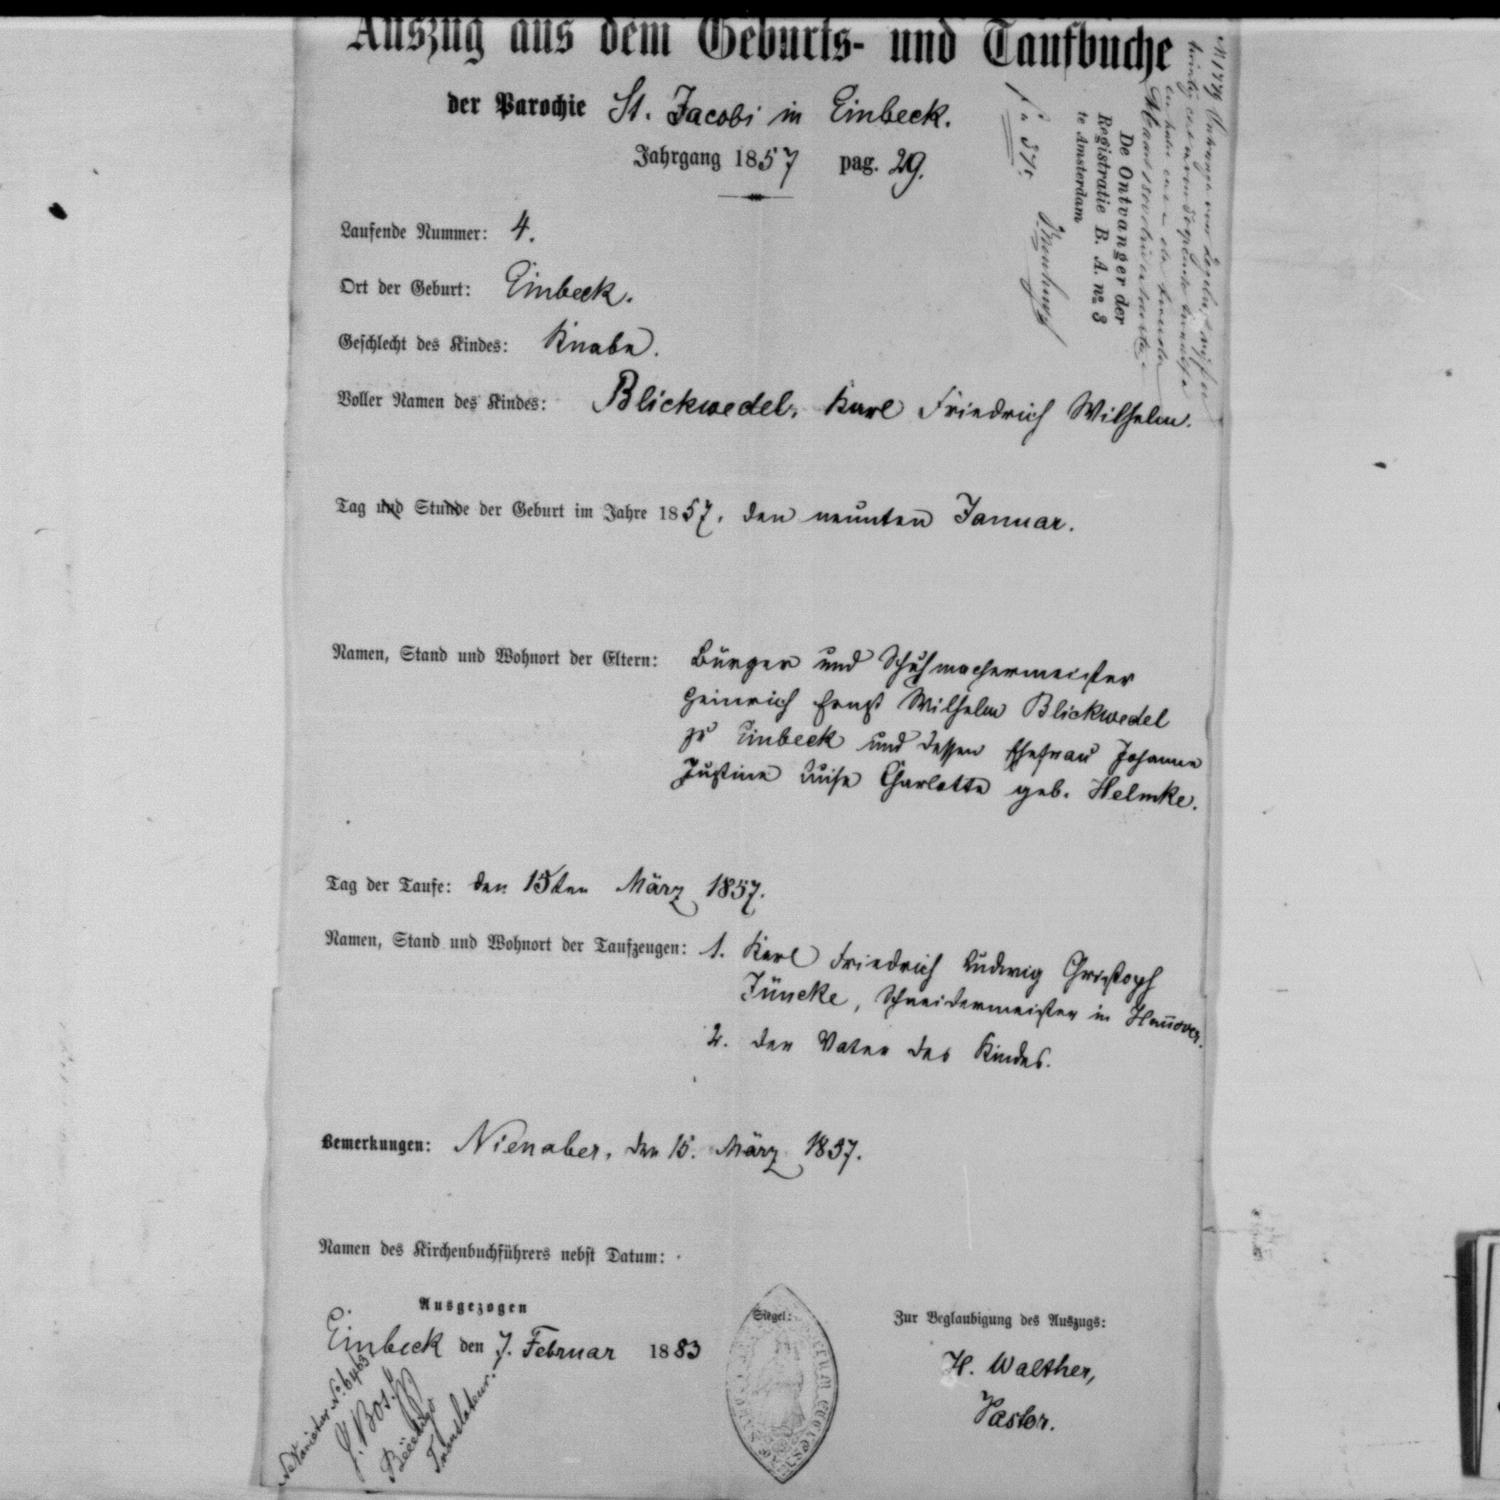 Auszug aus dem Geburts- und Taufbuche
der Parochie St. Jacobi in Einbeck.
Jahrgang 1857 pag. 29.
Laufende Nummer: 4.
Ort der Geburt: Einbeck.
Geschlecht des Kindes: Knabe.
Voller Namen des Kindes: Blickwedel, Karl Friedrich Wilhelm.
Tag und Stunde der Geburt im Jahre 1857, den neunten Januar.
Namen, Stand und Wohnort der Eltern: Bürger und Schuhmachermeister
Heinrich Ernst Wilhelm Blickwedel
zu Einbeck und dessen Ehefrau Johanne
Justine Luise Charlotte geb. Helmke.
Tag der Taufe: den 15ten März 1857.
Namen, Stand und Wohnort der Taufzeugen: 1. Karl Friedrich Ludwig Christoph
Jüncke, Schneidermeister in Hannover.
2. der Vater des Kindes.
Bemerkungen: Nienaber, den 15. März 1857.
Namen des Kirchenbuchführers nebst Datum:
Ausgezogen
Einbeck den 7. Februar 1883
Siegel:
Zur Beglaubigung des Auszugs:
H. Walther,
Pastor.
De Ontvanger der
Registratie B. A. no. 3
te Amsterdam
J. Bosch
Beëedigd
Translateur.